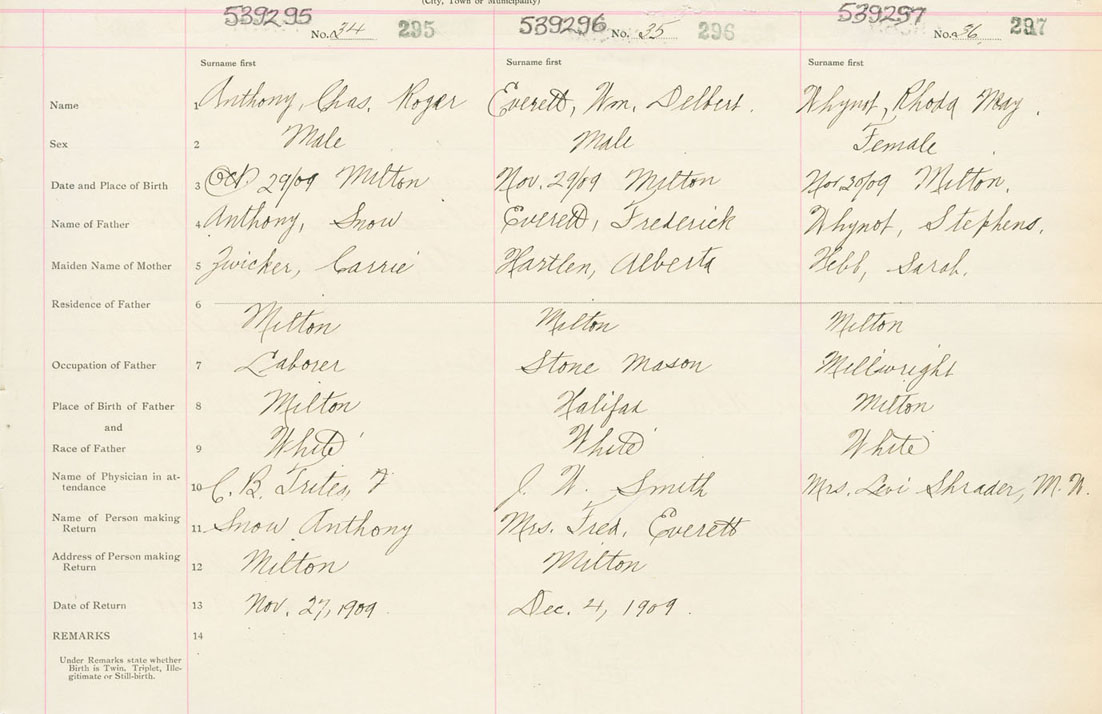 (City, Town or Municipality)
539295 No. 34 295 539296 No. 35 296 539297 No. 36 297
Surname first Surname first Surname first
Name 1 Anthony, Chas. Roger Everett, Wm. Delbert. Whynot, Rhoda May.
Sex 2 Male Male Female
Date and Place of Birth 3 Oct 29/09 Milton Nov. 29/09 Milton Nov 30/09 Milton.
Name of Father 4 Anthony, Snow Everett, Frederick Whynot, Stephens.
Maiden Name of Mother 5 Zwicker, Carrie Hartlen, Alberta Hebb, Sarah.
Residence of Father 6
Milton Milton Milton
Occupation of Father 7 Laborer Stone Mason Millwright
Place of Birth of Father 8 Milton Halifax Milton
and
Race of Father 9 White White White
Name of Physician in at-
tendance 10 C. B. Trites, J. W. Smith Mrs. Levi Shrader, M. W.
Name of Person making
Return 11 Snow Anthony Mrs. Fred. Everett
Address of Person making
Return 12 Milton Milton
Date of Return 13 Nov. 27, 1909 Dec. 4, 1909.
REMARKS 14
Under Remarks state whether
Birth is Twin, Triplet, Ille-
gitimate or Still-birth.